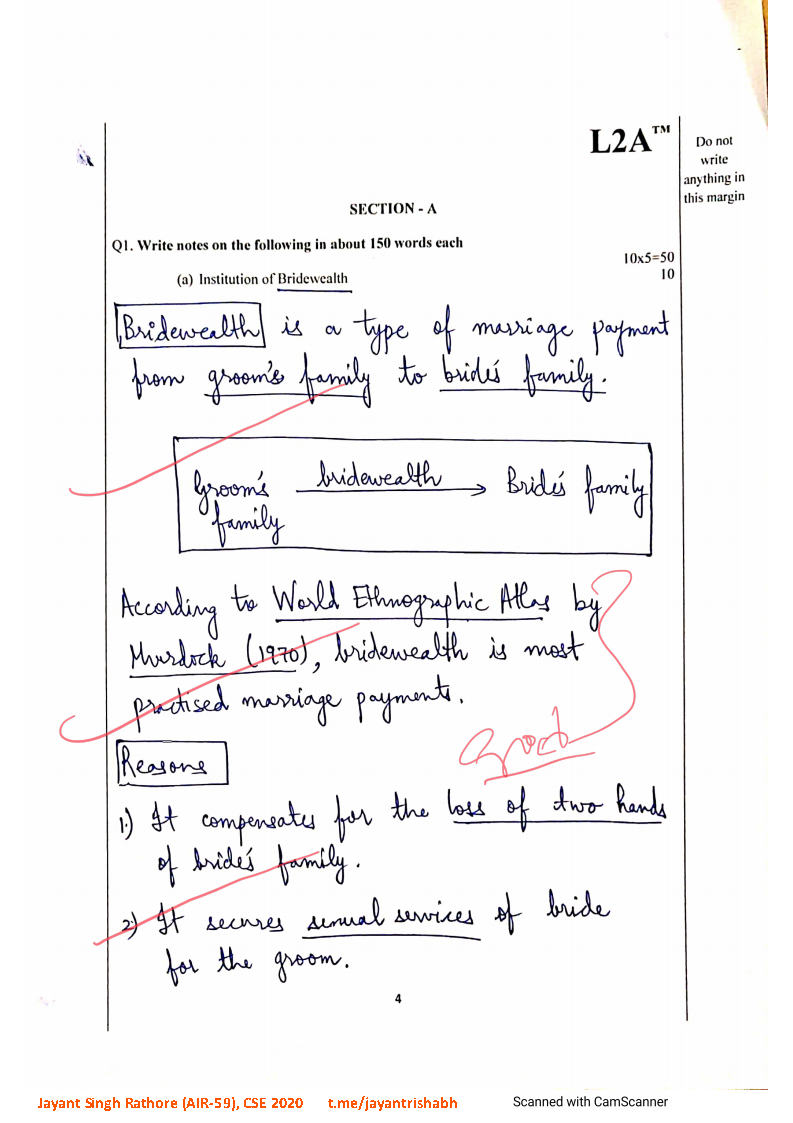 L2A™
Do not
write
anything in
this margin
SECTION - A
Q1. Write notes on the following in about 150 words each
10x5=50
(a) Institution of Bridewealth
10
Bridewealth is a type of marriage payment
from groom's family to bride's family.
Groom's family bridewealth → Bride's family
According to World Ethnographic Atlas by
Murdock (1970), bridewealth is most
practised marriage payments.
Good
Reasons
1.) It compensates for the loss of two hands
of bride's family.
2.) It secures sexual services of bride
for the groom.
4
Jayant Singh Rathore (AIR-59), CSE 2020 t.me/jayantrishabh
Scanned with CamScanner